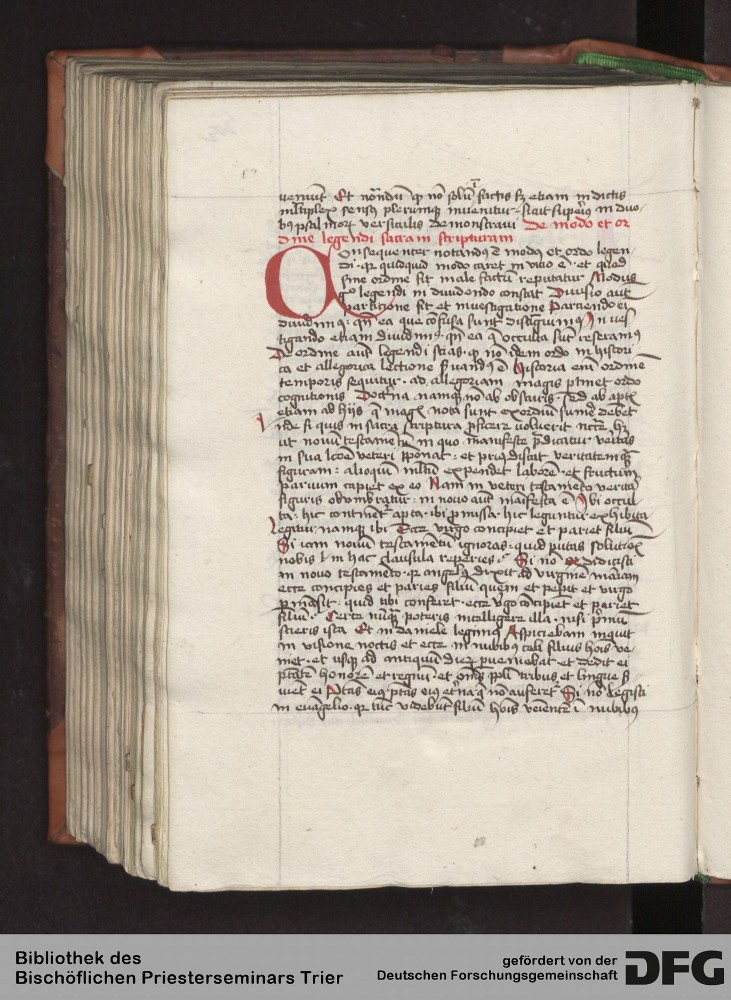 ueniu͂t Et nota͂du͂ ꝙ no͂ solu͂ in factis sꝫ etiam in dictis
multiplex sensꝯ pleru͂mqꝫ inuenitur · sicut supeꝰiꝯ in duo/
bꝯ psalmoꝝ versiculis demonstraui De modo et or
dine legendi sacram scripturam
Onsequenter notandu͂ ē modꝯ et ordo legen/
di · qꝛ quidquid modo caret in vitio ē · et quod
sine ordine fit male factu͂ reputatur Modus
gͦ legendi in diuidendo constat Diuisio aut͂
particione fit et inuestigatione Parciendo ei͂
diuidimꝯ · qn͂ ea que co͂fusa sunt distinguimꝯ In ues
tigando etiam diuidimꝯ · qn͂ ea q̄ occulta su͂t reseramꝯ
De ordine aut͂ legendi scias · ꝙ no͂ idem ordo in histori
ca et allegorica lectione ẜuandꝯ ē Historia eni͂ ordine͂
temporis sequitur · ad allegoriam magis ꝑtinet ordo
cognitionis Doctⁱna namqꝫ no͂ ab obscuris · sed ab aptꝭ
etiam ad hijs q̄ magꝭ nota sunt exordiu͂ sume͂ debet
Inde si quis in sacra scriptura ꝓficere voluerit necꝫ hꝫ
ut nouu͂ testamentu͂ in quo manifeste p̄dicatur veritas
in sua lc͂oe veteri p̄ponat · et priꝯ discat veritatemqꝫ
figuram · alioqui͂ multu͂ expendet labore͂ · et fructum
paruum capiet ex eo Nam in veteri testamento verita͂
figuris obumbratur · in nouo aut͂ maifesta ē Ibi occul
ta · hic continet͂ apta · ibi ꝓmissa · hic leguntur exhibita
Legitur namqꝫ ibi Ecce virgo concipiet et pariet filiu͂
Si iam nouu͂ testamentu͂ ignoras · quid putas solutio͂e͂
nobis in hac clausula reperies Si no͂ didicisti
in nouo testame͂to · qꝛ angelꝯ dixit ad virgine͂ mariam
ecce concipies et paries filiu͂ quem et peperit et virgo
ꝑmansit · quid tibi conferet · ecce ỽgo concipiet et pariet
filiu͂ Certe nuqͣ͂ poteris intelligere illa · nisi pⁱmu͂
scieris ista Et in daniele legimꝯ Aspiciebam inquit
in visione noctis et ecce in nubibꝯ celi filius hois ve
niet · et usqꝫ ad antiquu͂ dieꝝ ꝑueniebat et dedit ei
ptāte͂ honore͂ et regnu͂ · et om͂s ppli tribus et lingue ẜ
uie͂t ei Ptās eiꝯ · ptās eiꝯ et͂na q̄ no͂ auferet͂ Si no͂ legisti
in euangelio · qꝛ tu͂c videbu͂t filiu͂ hois veiente͂ i͂ nubibꝯ
Bibliothek des
Bischöflichen Priesterseminars Trier
gefördert von der
Deutschen Forschungsgemeinschaft
DFG